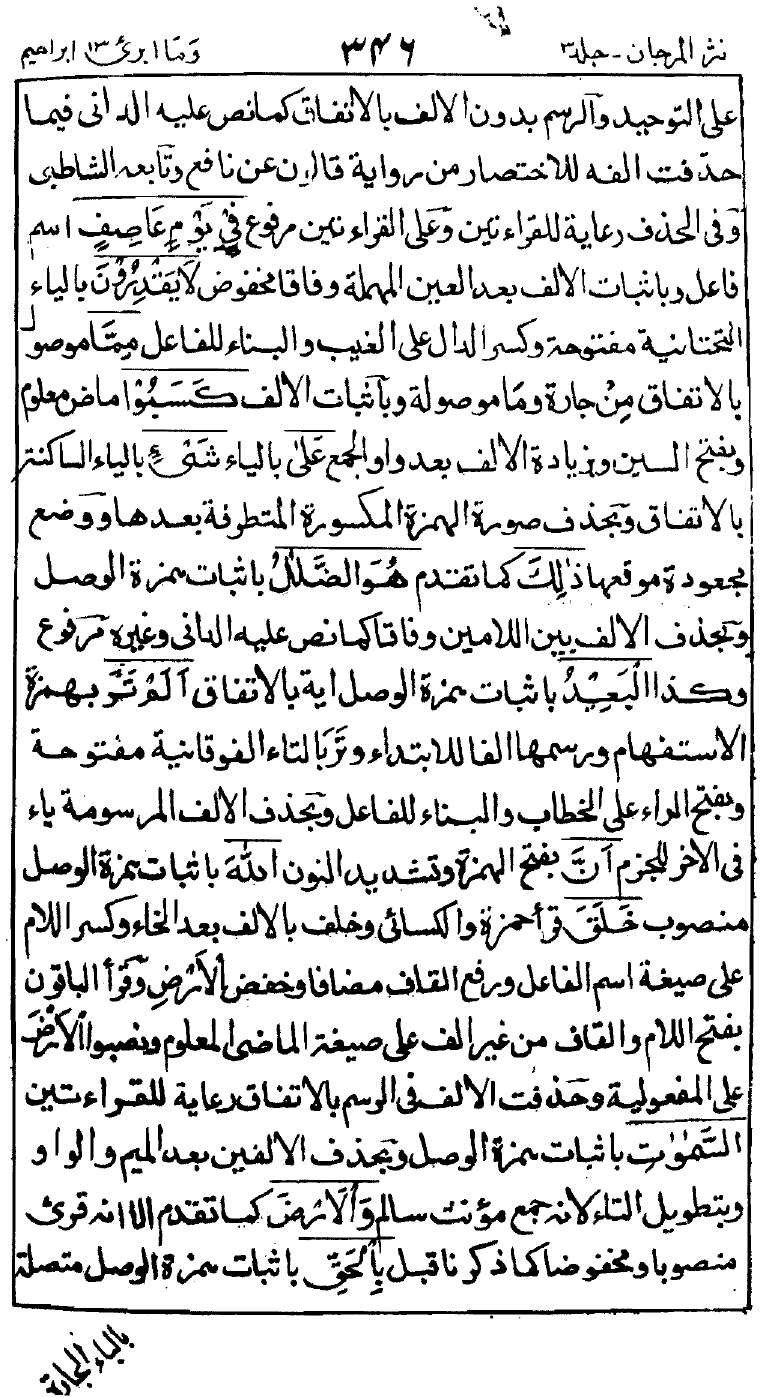 نثر المرجان - جلد ٣ ٣٤٦ وَمَا ابرئ ١٣ ابراهيم
على التوحيد والرسم بدون الالف بالاتفاق كما نص عليه الدانى فيما
حذفت الفه للاختصار من رواية قالون عن نافع وتابعه الشاطبى
وفى الحذف رعاية للقراءتين وَعلى القراءتين مرفوع فِىْ يَوْمٍ عَاصِفٍ اسم
فاعل وباثبات الالف بعد العين المهملة وفاقا مخفوض لَا يَقْدِرُوْنَ بالياء
التحتانية مفتوحة وكسر الدال على الغيب والبناء للفاعل مِمَّا موصول
بالاتفاق مِنْ جارة ومَا موصولة وباثبات الالف كَسَبُوْا ماض معلوم
وبفتح السين وبزيادة الالف بعد واو الجمع عَلٰى بالياء شَىْءٍ بالياء الساكنة
بالاتفاق وبحذف صورة الهمزة المكسورة المتطرفة بعدها ووضع
مجعودة موقعها ذٰلِكَ كما تقدم هُوَ الضَّلٰلُ باثبات همزة الوصل
وبحذف الالف بين اللامين وفاقا كما نص عليه الدانى وغيره مرفوع
وكذا الْبَعِيْدُ باثبات همزة الوصل اية بالاتفاق اَلَمْ تَرَ بهمزة
الاستفهام ورسمها الفا للابتداء وتَرَ بالتاء الفوقانية مفتوحة
وبفتح الراء على الخطاب والبناء للفاعل وبحذف الالف المرسومة ياء
فى الاخر للجزم اَنَّ بفتح الهمزة وتشديد النون اللّٰهَ باثبات همزة الوصل
منصوب خَلَقَ قرأ حمزة والكسائى وخلف بالالف بعد الخاء وكسر اللام
على صيغة اسم الفاعل ورفع القاف مضافا وخفض الْاَرْضِ وقرأ الباقون
بفتح اللام والقاف من غير الف على صيغة الماضى المعلوم ونصبوا الْاَرْضَ
على المفعولية وحذفت الالف فى الرسم بالاتفاق رعاية للقراءتين
السَّمٰوٰتِ باثبات همزة الوصل وبحذف الالفين بعد الميم والواو
وبتطويل التاء لانه جمع مؤنث سالم وَالْاَرْضَ كما تقدم الا انه قرئ
منصوبا ومخفوضا كما ذكرنا قبل بِالْحَقِّ باثبات همزة الوصل متصلة
بالباء الجارة